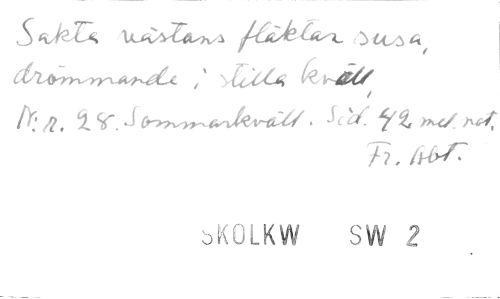 Sakta västans fläktar susa,
drömmande i stilla kväll,
N:r. 28. Sommarkväll. Sid. 42 mel. not.
Fr. Abt.
SKOLKW SW 2